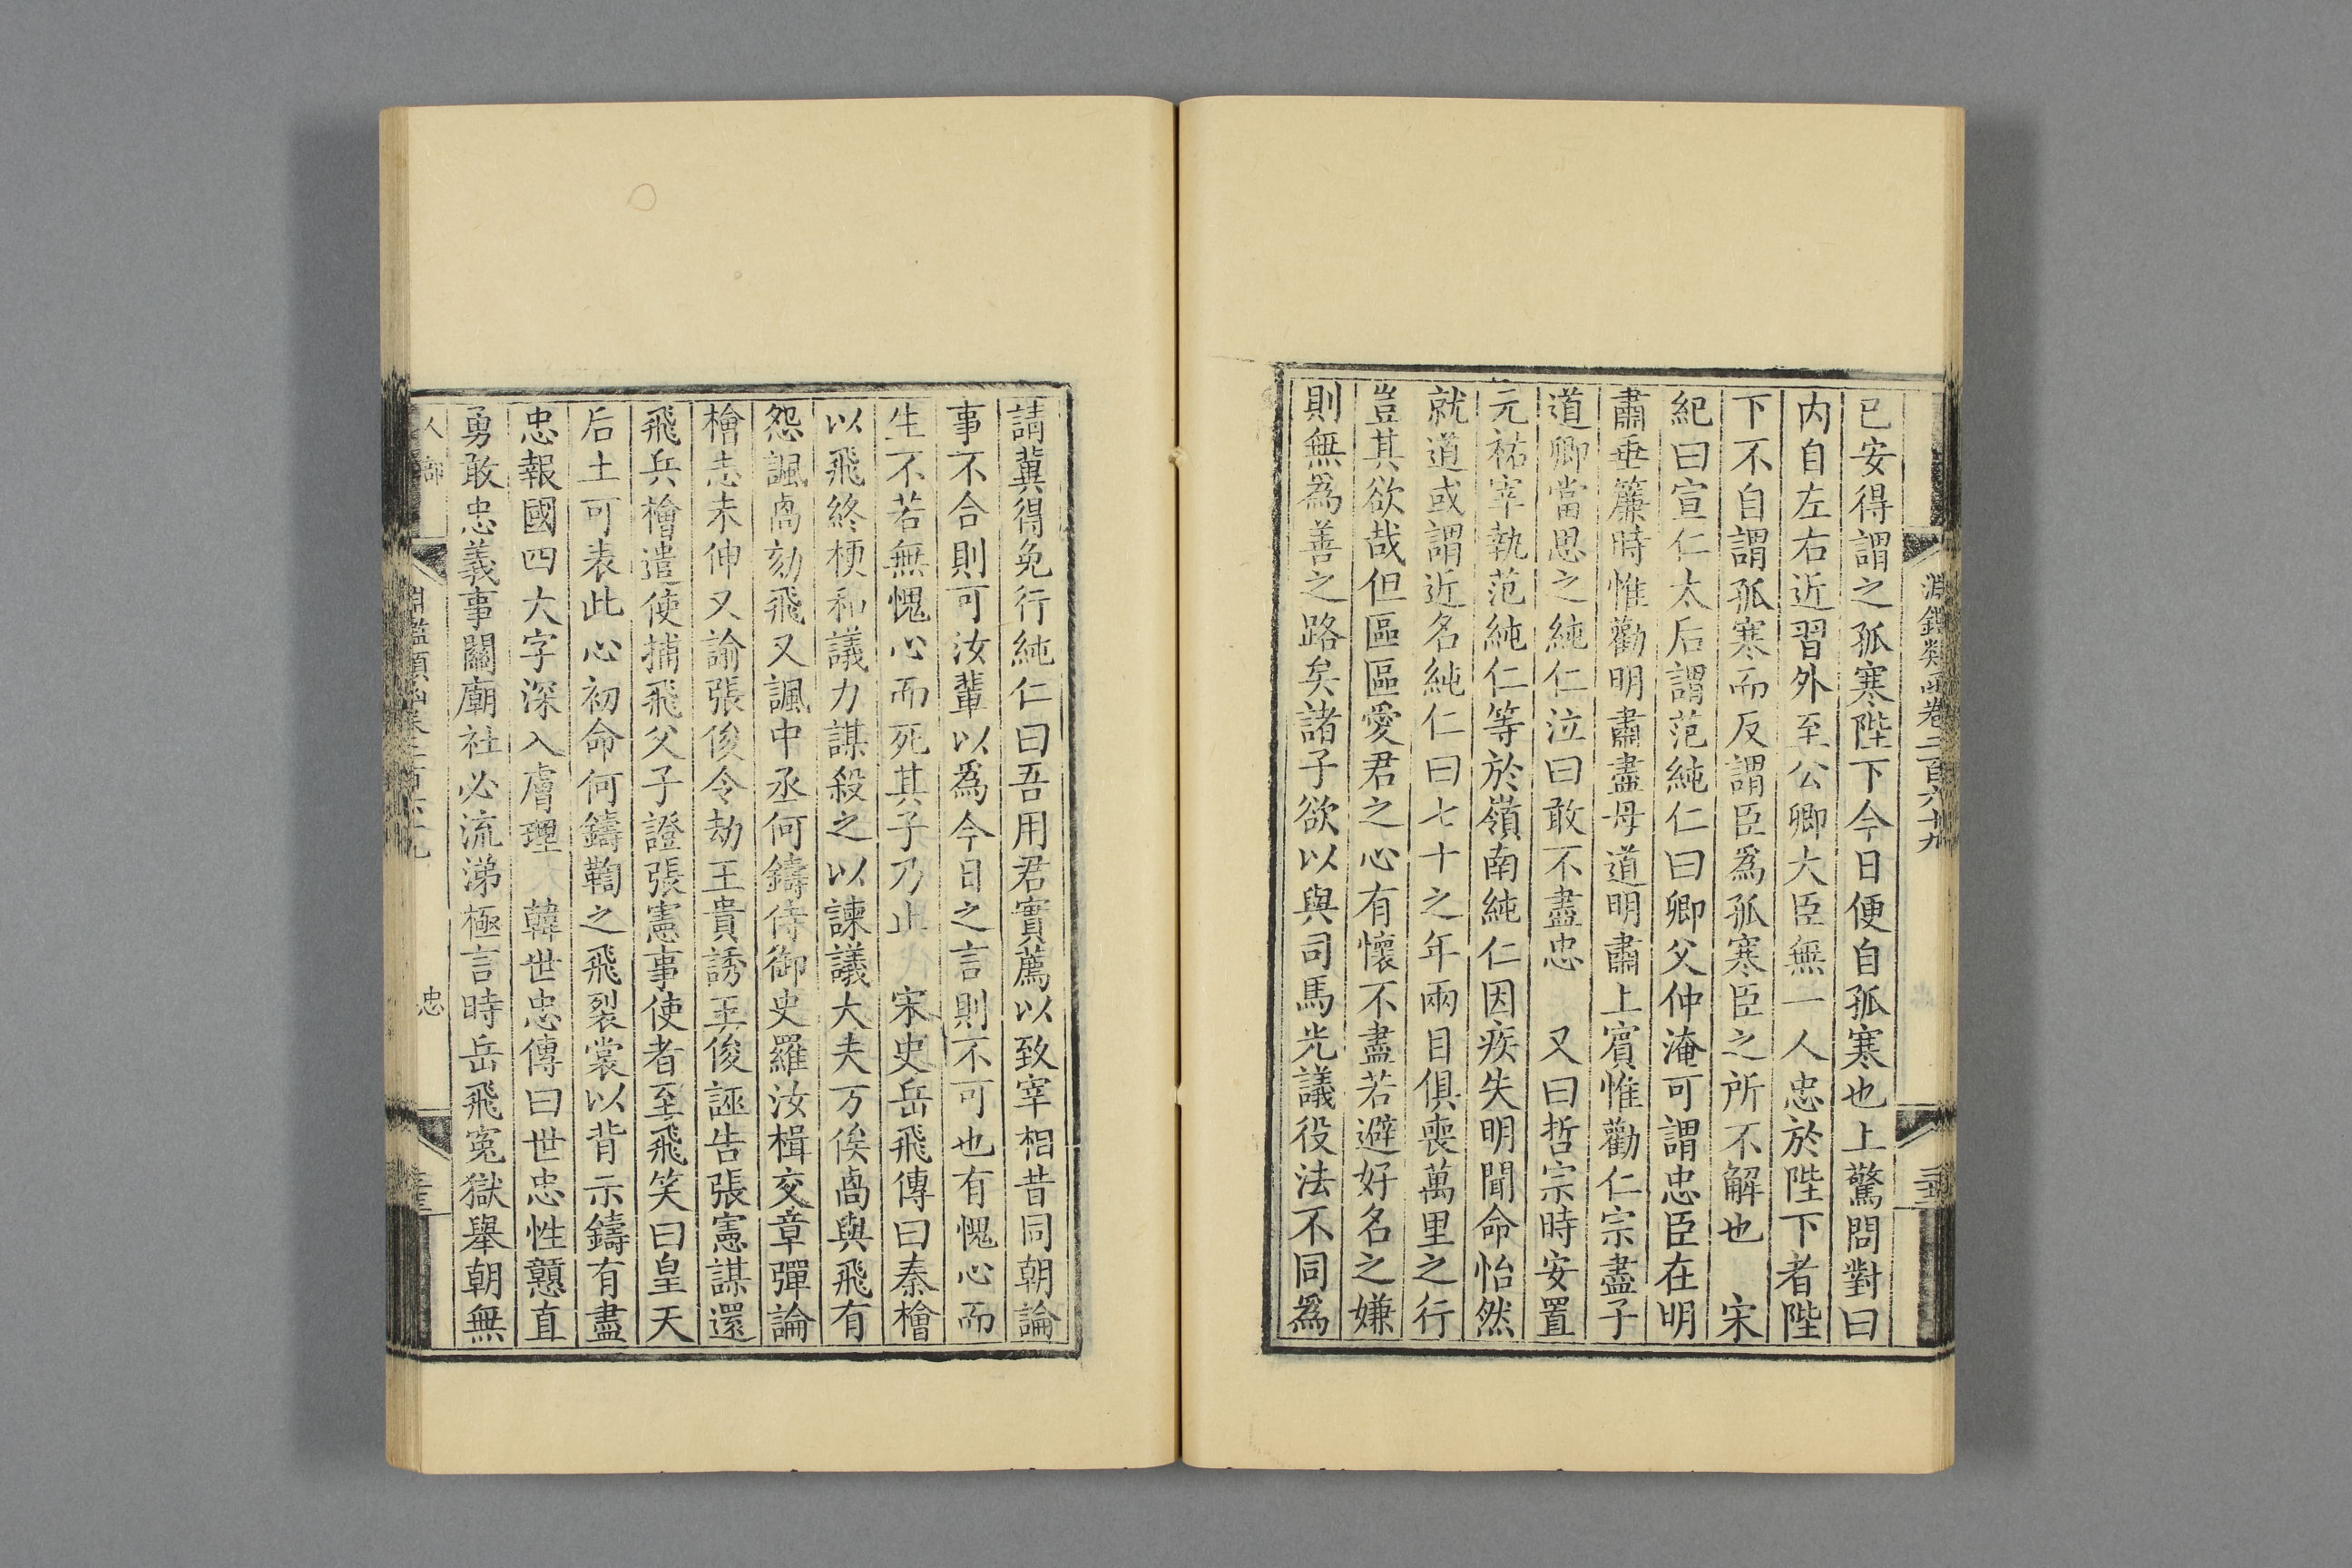 淵鑑類函卷二百六十九
已安得謂之孤寒陛下今日便自孤寒也上驚問對曰
内自左右近習外至公卿大臣無一人忠於陛下者陛
下不自謂孤寒而反謂臣爲孤寒臣之所不解也 宋
紀曰宣仁太后謂范純仁曰卿父仲淹可謂忠臣在明
肅垂簾時惟勸明肅盡母道明肅上賓惟勸仁宗盡子
道卿當思之純仁泣曰敢不盡忠 又曰哲宗時安置
元祐宰執范純仁等於嶺南純仁因疾失明聞命怡然
就道或謂近名純仁曰七十之年兩目俱喪萬里之行
豈其欲哉但區區愛君之心有懷不盡若避好名之嫌
則無爲善之路矣諸子欲以與司馬光議役法不同爲
請冀得免行純仁曰吾用君實薦以致宰相昔同朝論
事不合則可汝輩以爲今日之言則不可也有愧心而
生不若無愧心而死其子乃止 宋史岳飛傳曰秦檜
以飛終梗和議力謀殺之以諫議大夫万俟卨與飛有
怨諷卨劾飛又諷中丞何鑄侍御史羅汝楫交章彈論
檜志未伸又諭張俊令劫王貴誘王俊誣告張憲謀還
飛兵檜遣使捕飛父子證張憲事使者至飛笑曰皇天
后土可表此心初命何鑄鞫之飛裂裳以背示鑄有盡
忠報國四大字深入膚理 韓世忠傳曰世忠性戇直
勇敢忠義事關廟社必流涕極言時岳飛冤獄舉朝無
人部 忠